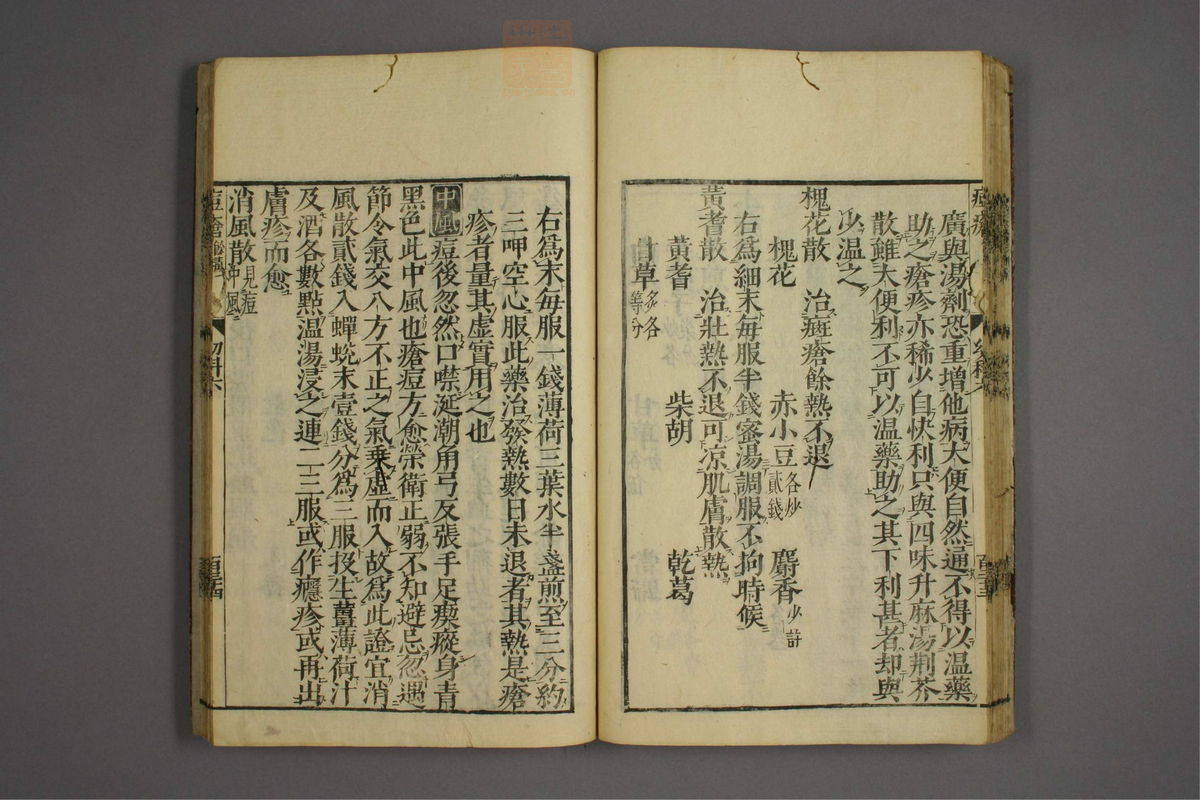 廣與湯劑恐重增他病大便自然通不得以温藥
助之瘡疹亦稀少自快利只與四味升麻湯荆芥
散雖大便利不可以温藥助之其下利甚者却與
少温之
槐花散　治斑瘡餘熱不退
槐花　赤小豆各炒貳錢　麝香少計
右爲細末毎服半錢蜜湯調服不拘時候
黃耆散　治壯熱不退可凉肌膚散熱
黃耆　柴胡　乾葛
甘草炙各等分
右爲末毎服一錢薄荷三葉水半盞煎至三分約
三呷空心服此藥治發熱數日未退者其熱是瘡
疹者量其虛實用之也
中風　痘後忽然口噤涎潮角弓反張手足瘈瘲身青
黑色此中風也瘡痘方愈榮衛正弱不知避忌忽遇
節令氣交八方不正之氣乗虛而入故爲此證宜消
風散貳錢入蟬蛻末壹錢分爲三服投生薑薄荷汁
及酒各數點温湯浸之連二三服或作癮疹或再出
膚疹而愈
消風散見痘中風
痘瘡　幼科六